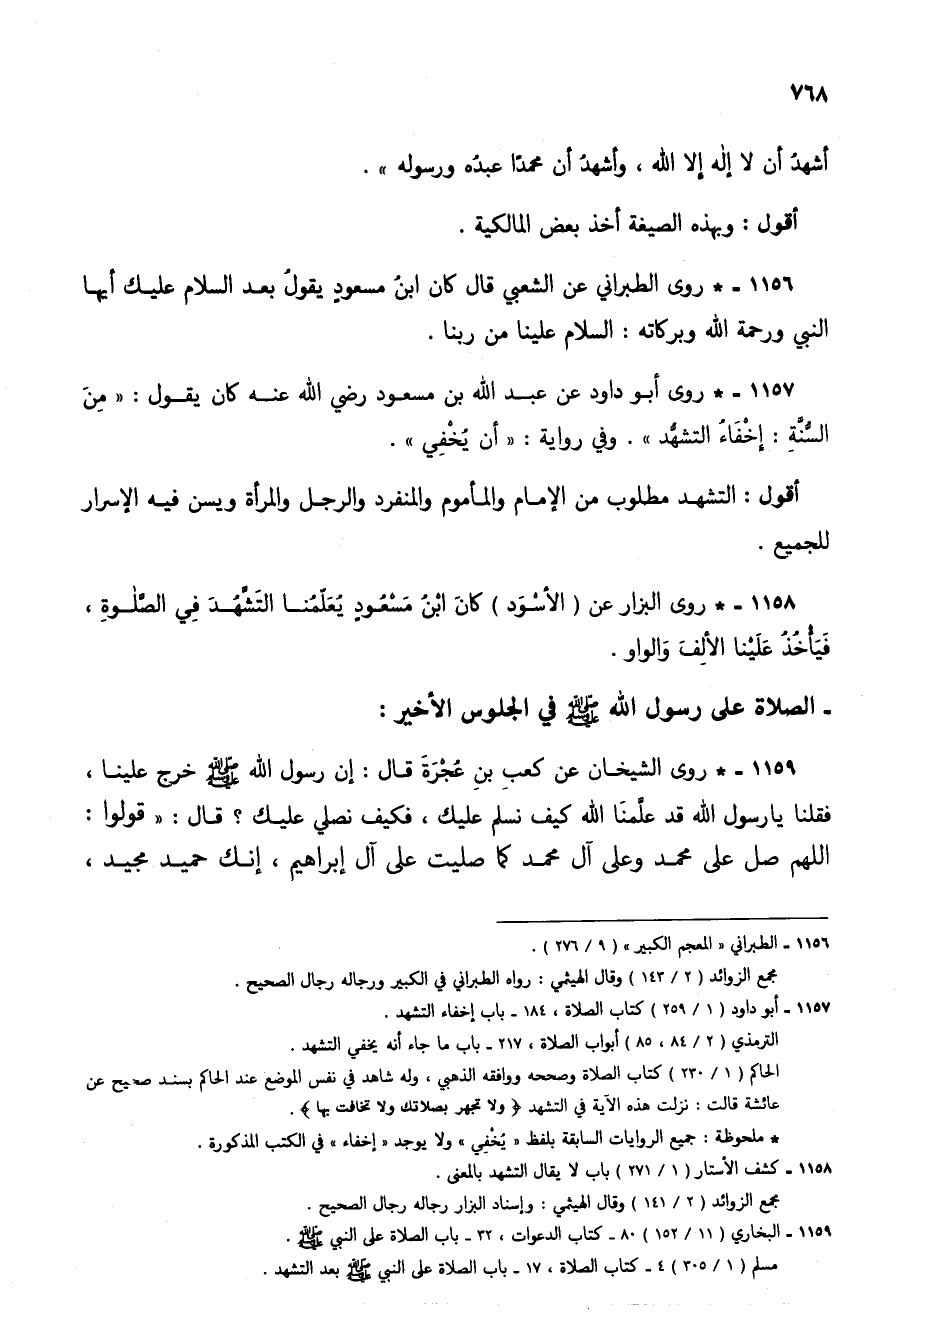 ٧٦٨
أشهدُ أن لا إلٰه إلا الله ، وأشهدُ أن محمدًا عبدُه ورسوله » .
أقول : وبهذه الصيغة أخذ بعض المالكية .
١١٥٦ ـ * روى الطبراني عن الشعبي قال كان ابنُ مسعودٍ يقولُ بعد السلام عليك أيها
النبي ورحمة الله وبركاته : السلام علينا من ربنا .
١١٥٧ ـ * روى أبو داود عن عبد الله بن مسعود رضي الله عنه كان يقول : « مِنَ
السُّنَّةِ : إخْفَاءُ التشهُّد » . وفي رواية : « أن يُخْفِي » .
أقول : التشهد مطلوب من الإمام والمأموم والمنفرد والرجل والمرأة ويسن فيه الإسرار
للجميع .
١١٥٨ ـ * روى البزار عن ( الأسْوَد ) كانَ ابْنُ مَسْعُودٍ يُعَلِّمُنا التَشَّهُدَ فِي الصَّلٰوةِ ،
فَيَأْخُذُ عَلَيْنا الألِفَ وَالواو .
ـ الصلاة على رسول الله ﷺ في الجلوس الأخير :
١١٥٩ ـ * روى الشيخان عن كعبِ بنِ عُجْرَةَ قال : إن رسول الله ﷺ خرج علينا ،
فقلنا يارسول الله قد علَّمنَا الله كيف نسلم عليك ، فكيف نصلي عليك ؟ قال : « قولوا :
اللهم صل على محمد وعلى آل محمد كما صليت على آل إبراهيم ، إنك حميد مجيد ،
١١٥٦ ـ الطبراني « المعجم الكبير » ( ٩ / ٢٧٦ ) .
مجمع الزوائد ( ٢ / ١٤٣ ) وقال الهيثمي : رواه الطبراني في الكبير ورجاله رجال الصحيح .
١١٥٧ ـ أبو داود ( ١ / ٢٥٩ ) كتاب الصلاة ، ١٨٤ ـ باب إخفاء التشهد .
الترمذي ( ٢ / ٨٤ ، ٨٥ ) أبواب الصلاة ، ٢١٧ ـ باب ما جاء أنه يخفي التشهد .
الحاكم ( ١ / ٢٣٠ ) كتاب الصلاة وصححه ووافقه الذهبي ، وله شاهد في نفس الموضع عند الحاكم بسند صحيح عن
عائشة قالت : نزلت هذه الآية في التشهد ﴿ ولا تجهر بصلاتك ولا تخافت بها ﴾ .
* ملحوظة : جميع الروايات السابقة بلفظ « يُخْفِي » ولا يوجد « إخفاء » في الكتب المذكورة .
١١٥٨ ـ كشف الأستار ( ١ / ٢٧١ ) باب لا يقال التشهد بالمعنى .
مجمع الزوائد ( ٢ / ١٤١ ) وقال الهيثمي : وإسناد البزار رجاله رجال الصحيح .
١١٥٩ ـ البخاري ( ١١ / ١٥٢ ) ٨٠ ـ كتاب الدعوات ، ٣٢ ـ باب الصلاة على النبي ﷺ .
مسلم ( ١ / ٣٠٥ ) ٤ ـ كتاب الصلاة ، ١٧ ـ باب الصلاة على النبي ﷺ بعد التشهد .